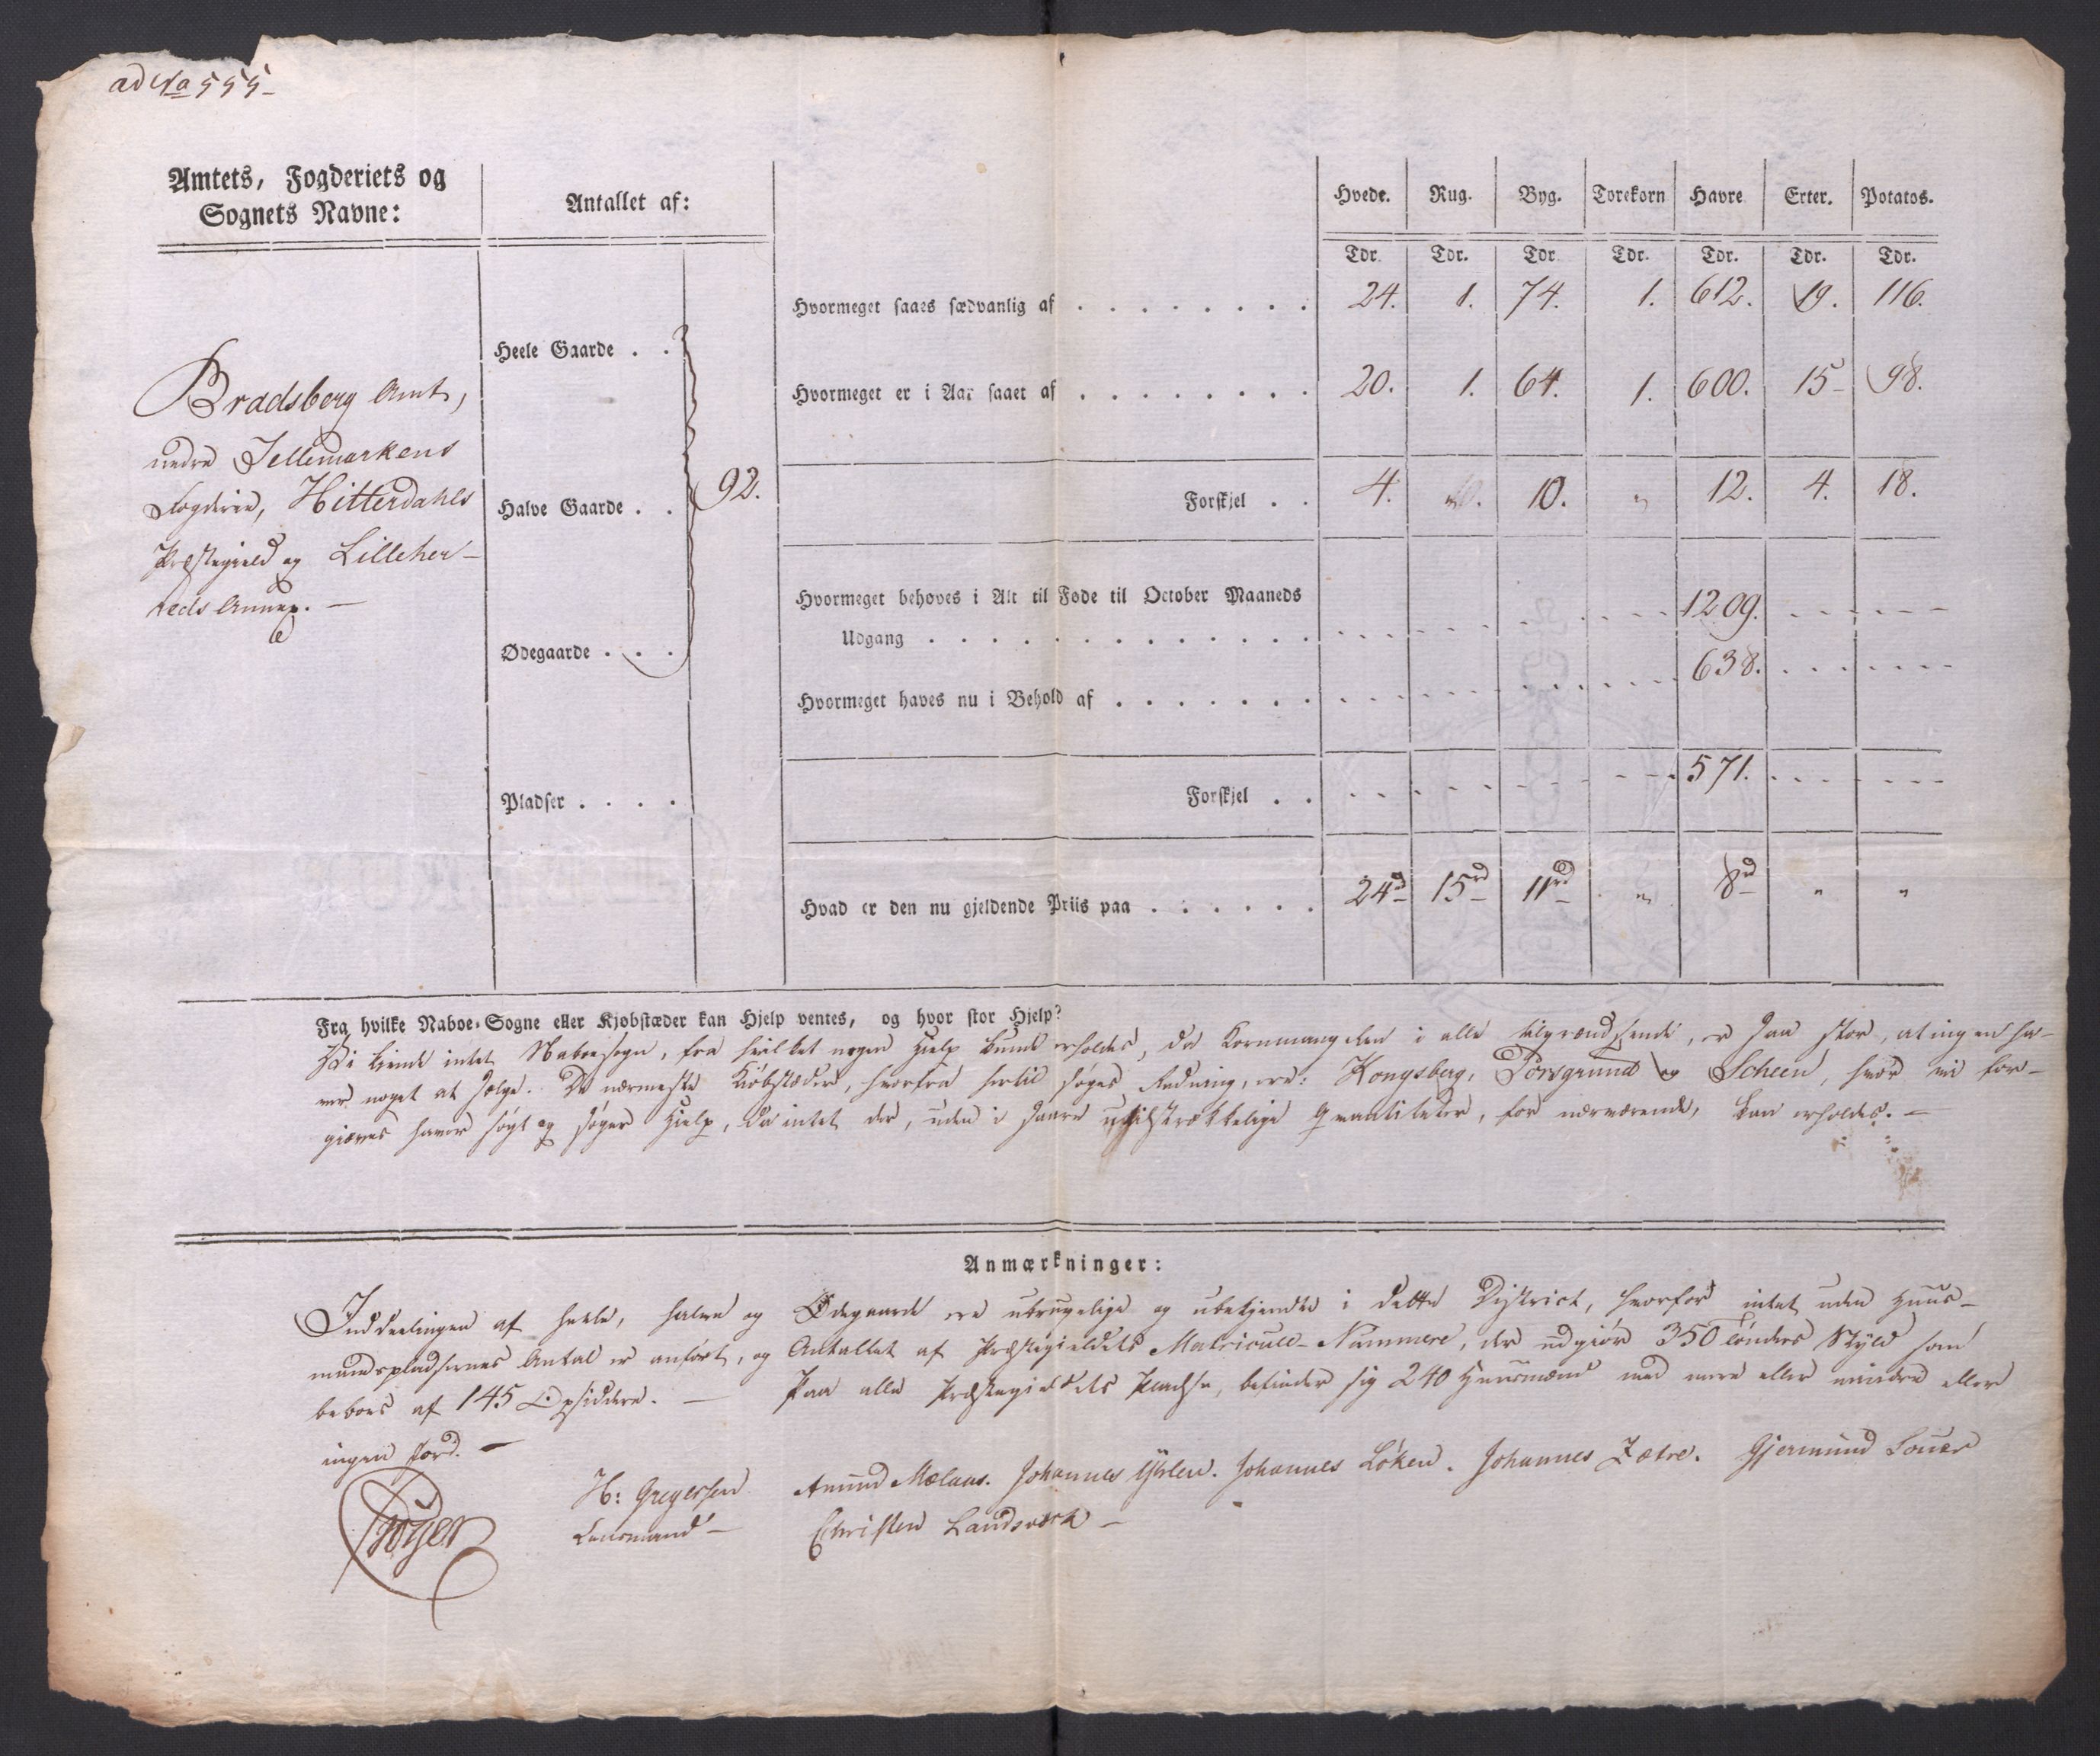 ad No 555
Amtets, Fogderiets og
Sognets Navne:
Antallet af:
Hvede. Rug. Byg. Torekorn Havre Erter. Potatos.
Tdr. Tdr. Tdr. Tdr. Tdr. Tdr. Tdr.
Hvormeget saaes sædvanlig af . . . . . . . . 24. 1. 74. 1. 612. 19. 116.
Heele Gaarde . .
Hvormeget er i Aar saaet af . . . . . . . . 20. 1. 64. 1. 600. 15 98.
Bradsberg Amt,
nedre Tellemarkens
Fogderie, Hitterdahls
Præstegield og Lilleher-
reds Annex. —
Halve Gaarde . . 92.
Forskjel . . 4. 10. " 12. 4. 18.
Hvormeget behoves i Alt til Fode til October Maaneds
Udgang . . . . . . . . . . . . . 1209.
Ødegaarde . . .
Hvormeget haves nu i Behold af . . . . . . . 638.
Pladser . . . .
Forskjel . . 571.
Hvad er den nu gjeldende Priis paa . . . . . . 24 rd 15 rd 11 rd " 8 rd " "
Fra hvilke Naboe-Sogne eller Kjobstæder kan Hjelp ventes, og hvor stor Hjelp?
Vi kiende intet Naboesogn, fra hvilket nogen Hielp kunde erholdes, da Kornmangelen i alle tilgrændsende, er saa stor, at ingen ha-
ver noget at sælge. De nærmeste Kiøbstæder, hvorfra hertil søges Redning, ere: Kongsberg, Porsgrund og Scheen, hvor vi for-
gieves haver søgt og søger Hielp, da intet der, uden i saare utilstrækkelige Qvantiteter, for nærværende, kan erholdes. —
Anmærkninger:
Inddeelingen af heele, halve og Ødegaarde ere ubrugelige og ubekjendte i dette District, hvorfor intet uden Huus-
mandspladsernes Antal er anført, og Antallet af Præstegieldets Matricule-Nummere, der udgiør 350 Tønders Skyld som
beboes af 145 Opsiddere. — Paa alle Præstegieldets Pladse, befinder sig 240 Huusmænd med mere eller mindre eller
ingen Jord. —
H: Gregersen Amund Mælaas. Johannes Løken. Johannes Zætre. Gjermund
Lensmand — Christen Landsværk —